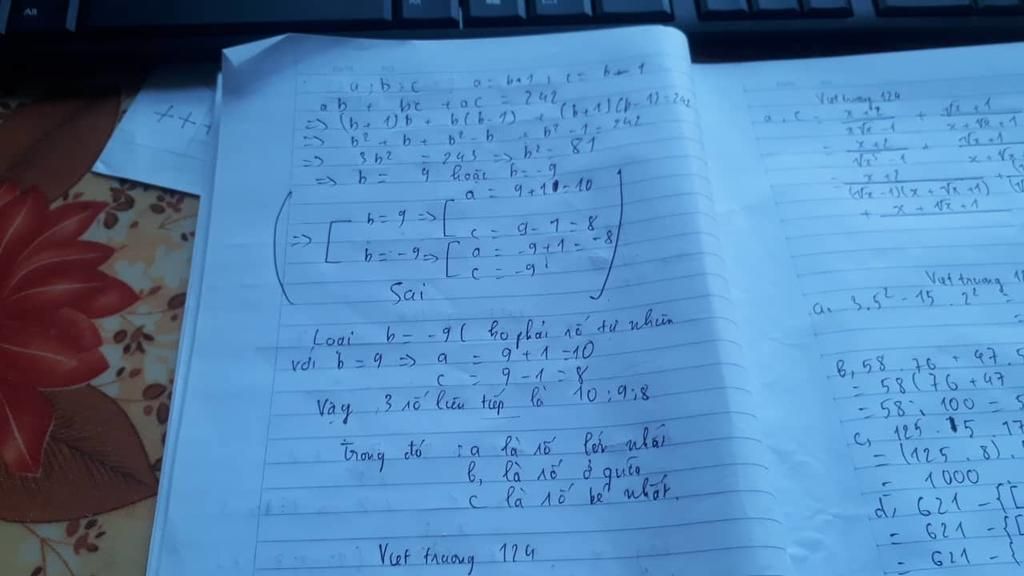 a; b; c ; a = b+1 ; c = b-1
ab + bc + ac = 242
=> (b+1)b + b(b-1) + (b+1)(b-1) = 242
=> b² + b + b² - b + b² - 1 = 242
=> 3b² = 243 => b² = 81
=> b = 9 hoặc b = -9
a = 9+1 = 10
=> b = 9 =>
c = 9 - 1 = 8
b = -9 => a = -9+1 = -8
c = -9
Sai
Loại b = -9 ( ko phải số tự nhiên
với b = 9 => a = 9 + 1 = 10
c = 9 - 1 = 8
Vậy 3 số liên tiếp là 10; 9; 8
trong đó : a là số lớn nhất
b, là số ở giữa
c là số bé nhất.
Viet truong 124
Viet truong 124
a, c = x + 2 / x√x - 1 + √x + 1 / x + √x + 1
= x + 2 / √x³ - 1 + √x + 1 / x + √x
= x + 2 / (√x - 1)(x + √x + 1)
+ x + √x + 1
Viet truong 1
a, 3.5² - 15.2² =
=
b, 58.76 + 47.5
= 58(76 + 47
= 58.100 = 5
c, 125.15.17
= (125.8).
= 1000
d, 621 - {[
= 621 - {[
= 621 - {